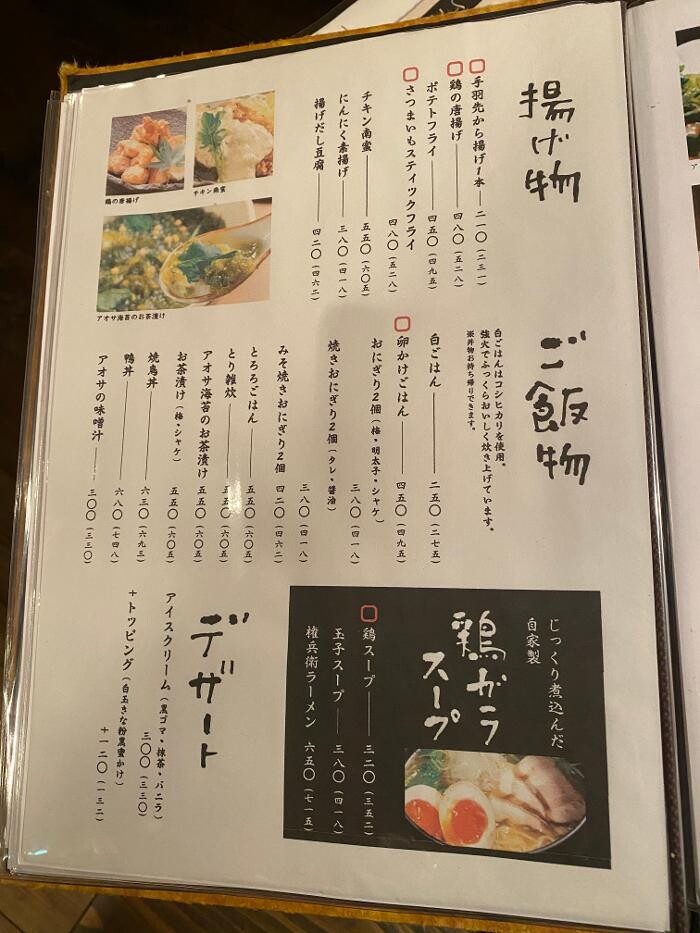 揚げ物
手羽先から揚げ1本 二一〇(二三一)
鶏の唐揚げ 四八〇(五二八)
ポテトフライ 四五〇(四九五)
さつまいもスティックフライ
四八〇(五二八)
チキン南蛮 五五〇(六〇五)
にんにく素揚げ 三八〇(四一八)
揚げだし豆腐 四二〇(四六二)
チキン南蛮
鶏の唐揚げ
アオサ海苔のお茶漬け
ご飯物
白ごはんはコシヒカリを使用。
強火でふっくらおいしく炊き上げています。
※丼物お持ち帰りできます。
白ごはん 二五〇(二七五)
卵かけごはん 四五〇(四九五)
おにぎり2個(梅・明太子・シャケ)
三八〇(四一八)
焼きおにぎり2個(タレ・醤油)
三八〇(四一八)
みそ焼きおにぎり2個 四二〇(四六二)
とろろごはん 五五〇(六〇五)
とり雑炊 五五〇(六〇五)
アオサ海苔のお茶漬け 五五〇(六〇五)
お茶漬け(梅・シャケ) 五五〇(六〇五)
焼鳥丼 六三〇(六九三)
鴨丼 六八〇(七四八)
アオサの味噌汁 三〇〇(三三〇)
じっくり煮込んだ
自家製
鶏ガラ
スープ
鶏スープ 三二〇(三五二)
玉子スープ 三八〇(四一八)
権兵衛ラーメン 六五〇(七一五)
デザート
アイスクリーム(黒ゴマ・抹茶・バニラ)
三〇〇(三三〇)
+トッピング(白玉きな粉黒蜜かけ)
+一二〇(一三二)